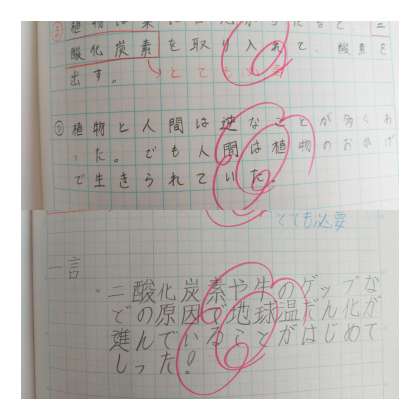 酸化炭素を取り入れて、酸素を
出す。
とても必要
③植物と人間は逆なことが多くわ
った。でも人間は植物のおかげ
で生きられていた。
とても必要
一言
・二酸化炭素や牛のゲップな
どの原因で地球温だん化が
進んでいることがはじめて
しった!